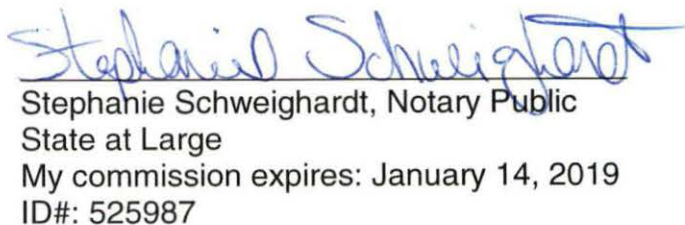 Stephanie Schweighardt
Stephanie Schweighardt, Notary Public
State at Large
My commission expires: January 14, 2019
ID#: 525987